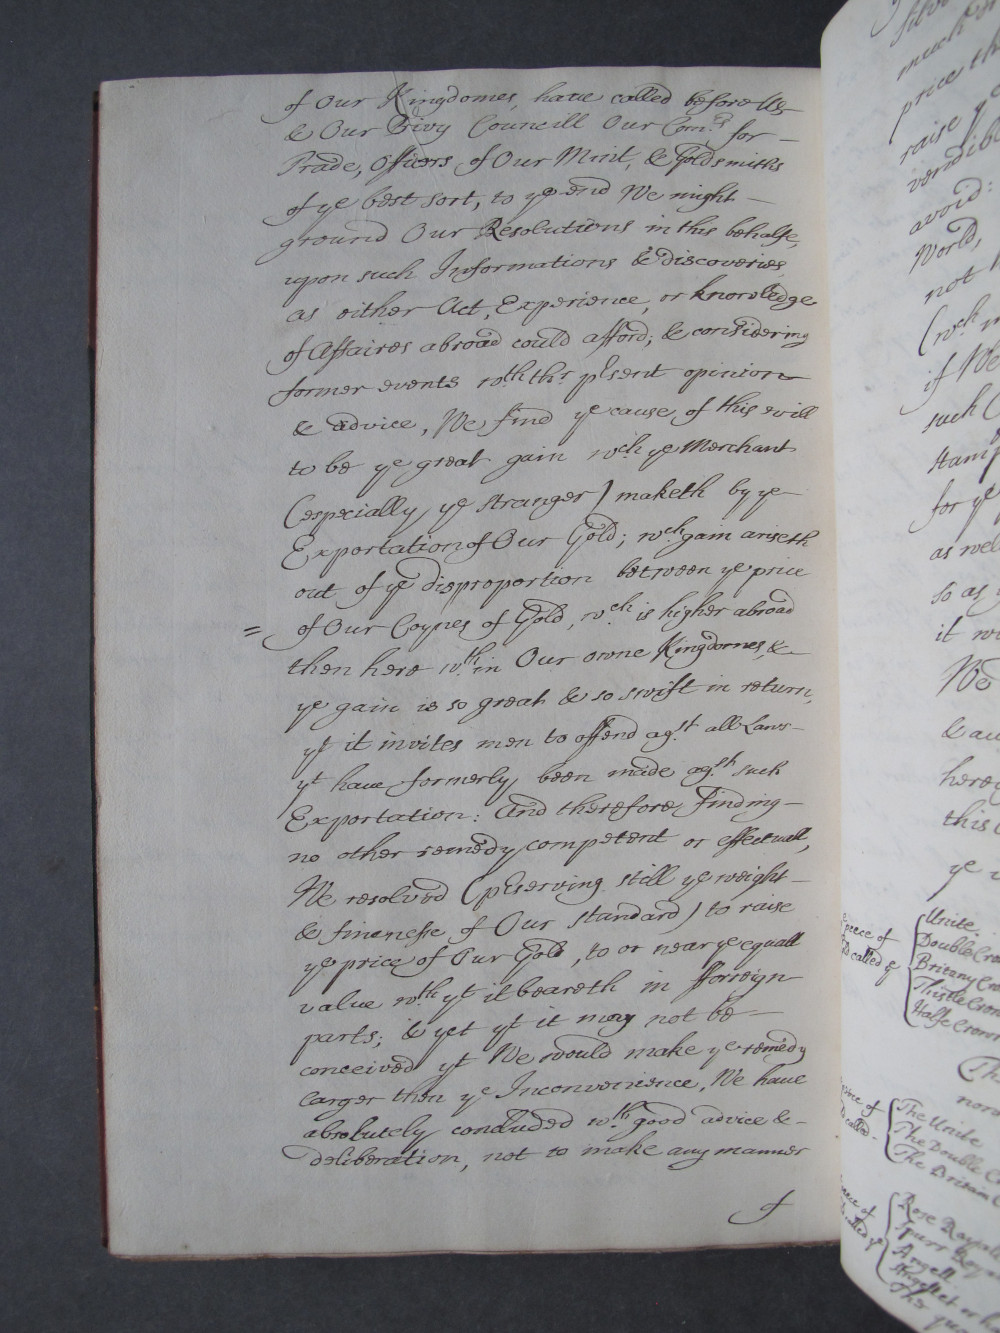 of Our Kingdomes, have called before Us
& Our Privy Councill Our Com.rs for -
Trade, Officers of Our Mint, & Goldsmiths
of ye best sort, to ye end We might -
ground Our Resolutions in this behalfe,
upon such Informations & discoveries
as either Act, Experience, or knowledge
of Affaires abroad could afford; & considering
former events wth ths pŝent opinion
& advice, We find ye cause of this evill
to be ye great gain wch ye Merchant
(especially ye stranger) maketh by ye -
Exportation of Our Gold; wch gain ariseth
out of ye disproportion between ye price
= of Our Coynes of Gold, wch is higher abroad
then here wth in Our owne Kingdomes, & -
ye gain is so great & so swift in return,
yt it invites men to offend agst all Laws -
yt have formerly been made agst such
Exportation: And therefore finding -
no other remedy competent or effectuall,
We resolved (pŝerving still ye weight -
& finenesse of Our standard) to raise
ye price of Our Gold, to or near ye equall
value wth yt it beareth in fforreign
parts; & yet yt it may not be -
conceived yt We would make ye remedy
larger then ye Inconvenience, We have
absolutely concluded wth good advice & -
deliberation, not to make any manner
of
much
price th
raise ye
vendible
avoid:
World,
not
(wch
if We
such
stamp
for ye
as wel
so as
it
We
& au
here
this
ye
peece of
called ye
Unite.
Double Cro
Britany Cro
Thistle Crow
Halfe Crow
Th
peece of
called -
The Unite
The Double C
The Britain C
peece of
called ye
Rose Royall
Spurr Roya
Angell
Angellet or ha
The qua